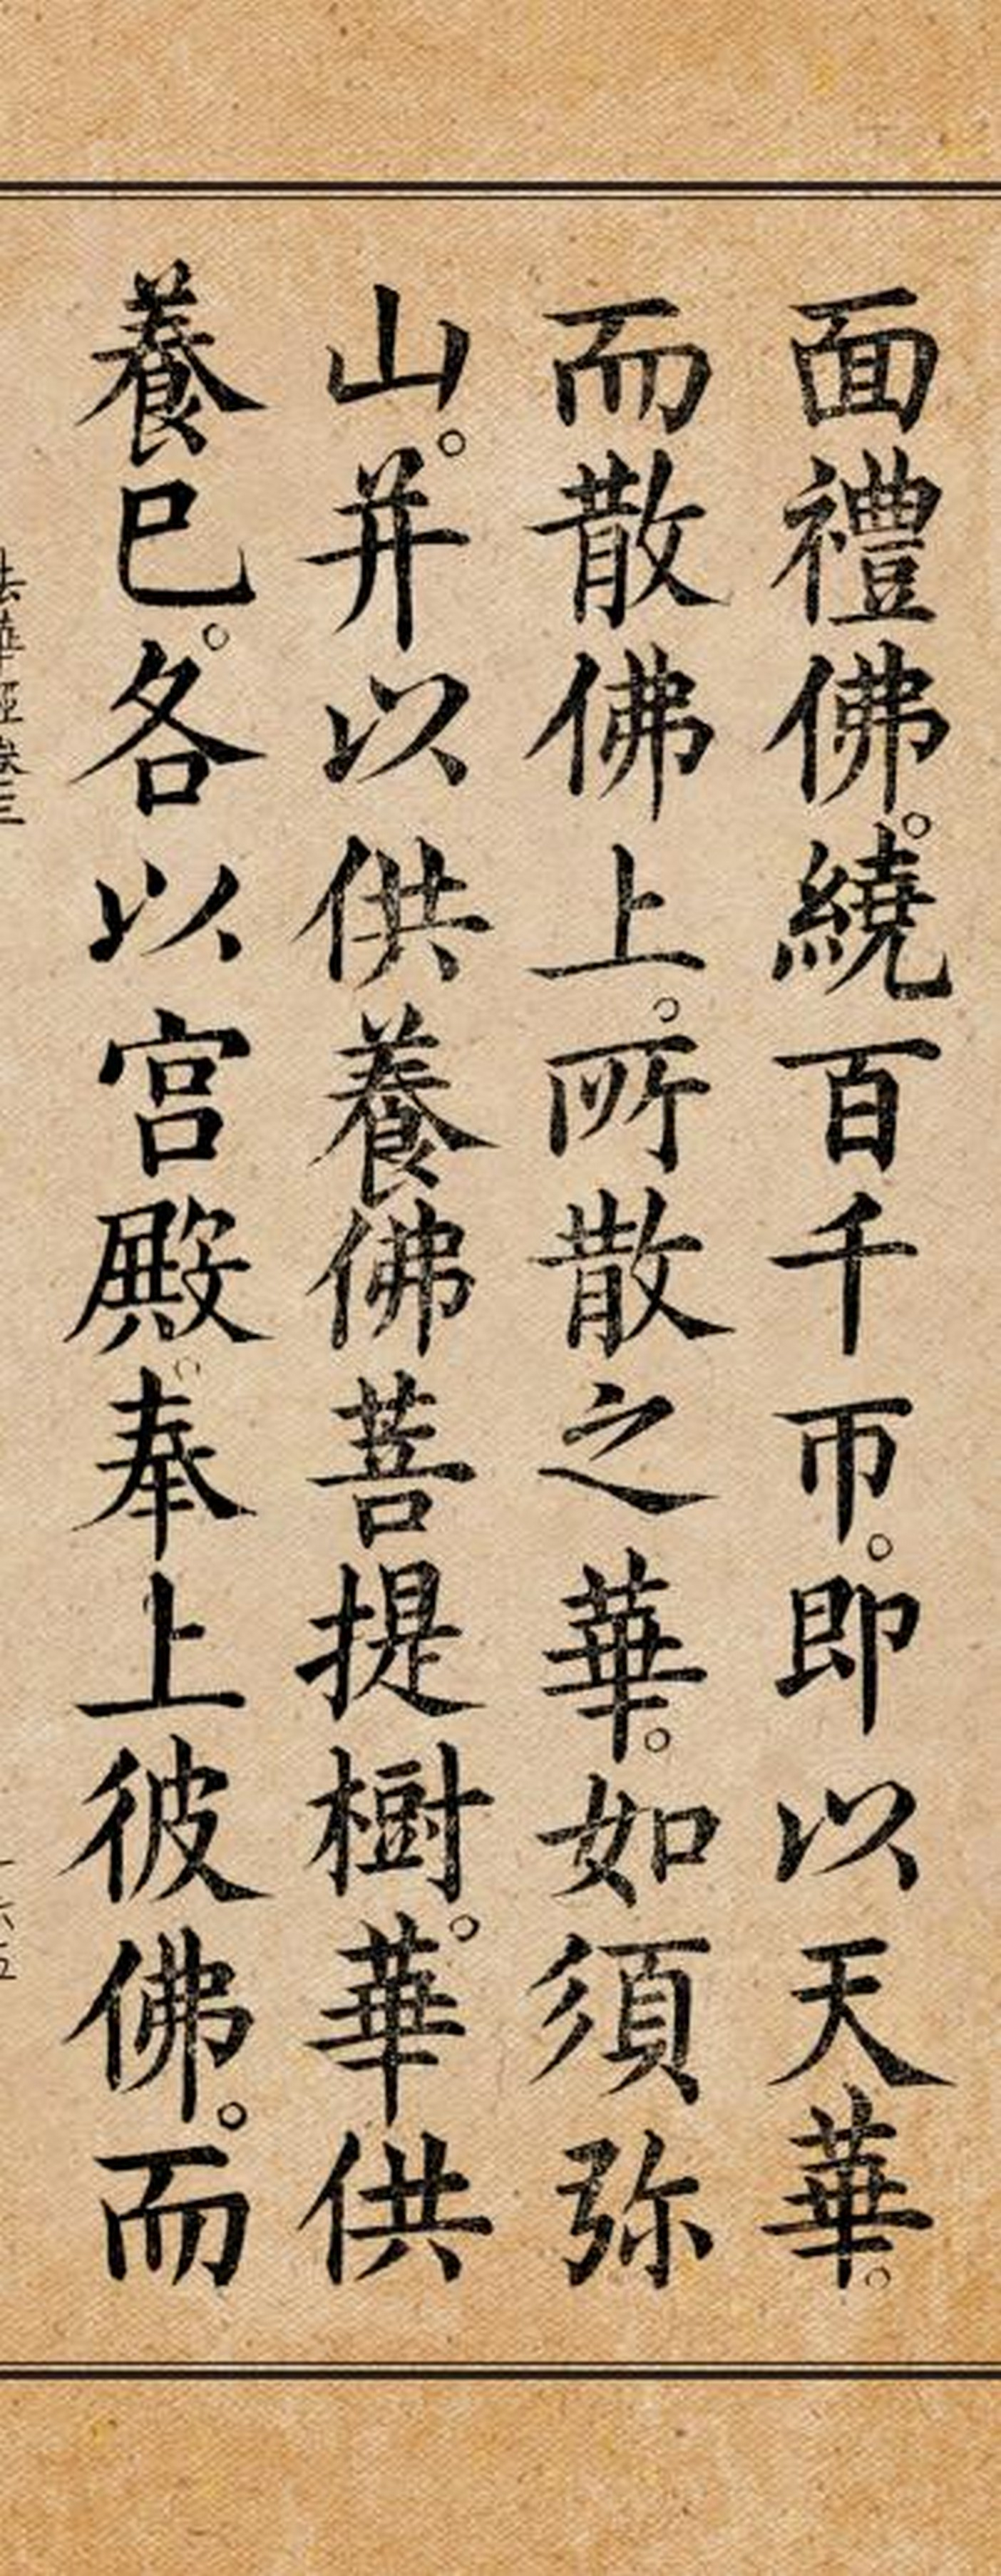 面禮佛。繞百千帀。即以天華。
而散佛上。所散之華。如須弥
山。并以供養佛菩提樹。華供
養已。各以宮殿。奉上彼佛。而
法華經卷三